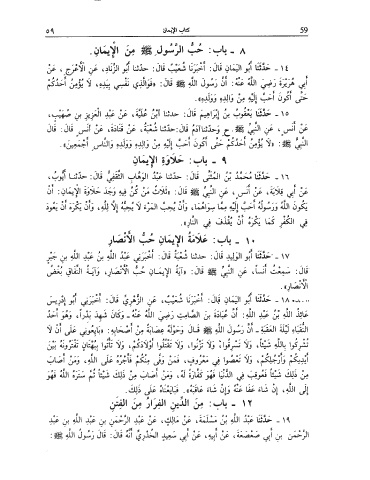 59 كتاب الإيمان ٥٩
٨ - باب: حُبُّ الرَّسُولِ ﷺ مِنَ الإِيمَانِ.
١٤ - حَدَّثَنَا أَبُو اليَمَانِ قَالَ: أَخْبَرَنَا شُعَيْبٌ قَالَ: حَدثنا أَبُو الزِّنَادِ، عَنِ الأَعْرَجِ، عَنْ
أَبِي هُرَيْرَةَ رَضِيَ اللَّهُ عَنْهُ: أَنَّ رَسُولَ اللَّهِ ﷺ قَالَ: «فَوَالَّذِي نَفْسِي بِيَدِهِ، لَا يُؤْمِنُ أَحَدُكُمْ
حَتَّى أَكُونَ أَحَبَّ إِلَيْهِ مِنْ وَالِدِهِ وَوَلَدِهِ».
١٥ - حَدَّثَنَا يَعْقُوبُ بْنُ إِبْرَاهِيمَ قَالَ: حدثنا ابْنُ عُلَيَّةَ، عَنْ عَبْدِ العَزِيزِ بْنِ صُهَيْبٍ،
عَنْ أَنَسٍ، عَنِ النَّبِيِّ ﷺ ح وَحدثنا آدَمُ قَالَ: حدثنا شُعْبَةُ، عَنْ قَتَادَةَ، عَنْ أَنَسٍ قَالَ: قَالَ
النَّبِيُّ ﷺ: «لَا يُؤْمِنُ أَحَدُكُمْ حَتَّى أَكُونَ أَحَبَّ إِلَيْهِ مِنْ وَالِدِهِ وَوَلَدِهِ وَالنَّاسِ أَجْمَعِينَ».
٩ - باب: حَلَاوَةِ الإِيمَانِ
١٦ - حَدَّثَنَا مُحَمَّدُ بْنُ المُثَنَّى قَالَ: حدثنا عَبْدُ الوَهَّابِ الثَّقَفِيُّ قَالَ: حدثنا أَيُّوبُ،
عَنْ أَبِي قِلَابَةَ، عَنْ أَنَسٍ، عَنِ النَّبِيِّ ﷺ قَالَ: «ثَلَاثٌ مَنْ كُنَّ فِيهِ وَجَدَ حَلَاوَةَ الإِيمَانِ: أَنْ
يَكُونَ اللَّهُ وَرَسُولُهُ أَحَبَّ إِلَيْهِ مِمَّا سِوَاهُمَا، وَأَنْ يُحِبَّ المَرْءَ لَا يُحِبُّهُ إِلَّا لِلَّهِ، وَأَنْ يَكْرَهَ أَنْ يَعُودَ
فِي الكُفْرِ كَمَا يَكْرَهُ أَنْ يُقْذَفَ فِي النَّارِ».
١٠ - باب: عَلَامَةُ الإِيمَانِ حُبُّ الأَنْصَارِ
١٧ - حَدَّثَنَا أَبُو الوَلِيدِ قَالَ: حدثنا شُعْبَةُ قَالَ: أَخْبَرَنِي عَبْدُ اللَّهِ بْنُ عَبْدِ اللَّهِ بْنِ جَبْرٍ
قَالَ: سَمِعْتُ أَنَساً، عَنِ النَّبِيِّ ﷺ قَالَ: «آيَةُ الإِيمَانِ حُبُّ الأَنْصَارِ، وَآيَةُ النِّفَاقِ بُغْضُ
الأَنْصَارِ».
١٨ - حَدَّثَنَا أَبُو اليَمَانِ قَالَ: أَخْبَرَنَا شُعَيْبٌ، عَنِ الزُّهْرِيِّ قَالَ: أَخْبَرَنِي أَبُو إِدْرِيسَ
عَائِذُ اللَّهِ بْنُ عَبْدِ اللَّهِ: أَنَّ عُبَادَةَ بْنَ الصَّامِتِ رَضِيَ اللَّهُ عَنْهُ، وَكَانَ شَهِدَ بَدْراً، وَهُوَ أَحَدُ
النُّقَبَاءِ لَيْلَةَ العَقَبَةِ: أَنَّ رَسُولَ اللَّهِ ﷺ قَالَ وَحَوْلَهُ عِصَابَةٌ مِنْ أَصْحَابِهِ: «بَايِعُونِي عَلَى أَنْ لَا
تُشْرِكُوا بِاللَّهِ شَيْئاً، وَلَا تَسْرِقُوا، وَلَا تَزْنُوا، وَلَا تَقْتُلُوا أَوْلَادَكُمْ، وَلَا تَأْتُوا بِبُهْتَانٍ تَفْتَرُونَهُ بَيْنَ
أَيْدِيكُمْ وَأَرْجُلِكُمْ، وَلَا تَعْصُوا فِي مَعْرُوفٍ، فَمَنْ وَفَى مِنْكُمْ فَأَجْرُهُ عَلَى اللَّهِ، وَمَنْ أَصَابَ
مِنْ ذَلِكَ شَيْئاً فَعُوقِبَ فِي الدُّنْيَا فَهُوَ كَفَّارَةٌ لَهُ، وَمَنْ أَصَابَ مِنْ ذَلِكَ شَيْئاً ثُمَّ سَتَرَهُ اللَّهُ فَهُوَ
إِلَى اللَّهِ، إِنْ شَاءَ عَفَا عَنْهُ وَإِنْ شَاءَ عَاقَبَهُ». فَبَايَعْنَاهُ عَلَى ذَلِكَ.
١٢ - باب: مِنَ الدِّينِ الفِرَارُ مِنَ الفِتَنِ
١٩ - حَدَّثَنَا عَبْدُ اللَّهِ بْنُ مَسْلَمَةَ، عَنْ مَالِكٍ، عَنْ عَبْدِ الرَّحْمَنِ بْنِ عَبْدِ اللَّهِ بْنِ عَبْدِ
الرَّحْمَنِ بْنِ أَبِي صَعْصَعَةَ، عَنْ أَبِيهِ، عَنْ أَبِي سَعِيدٍ الخُدْرِيِّ أَنَّهُ قَالَ: قَالَ رَسُولُ اللَّهِ ﷺ: